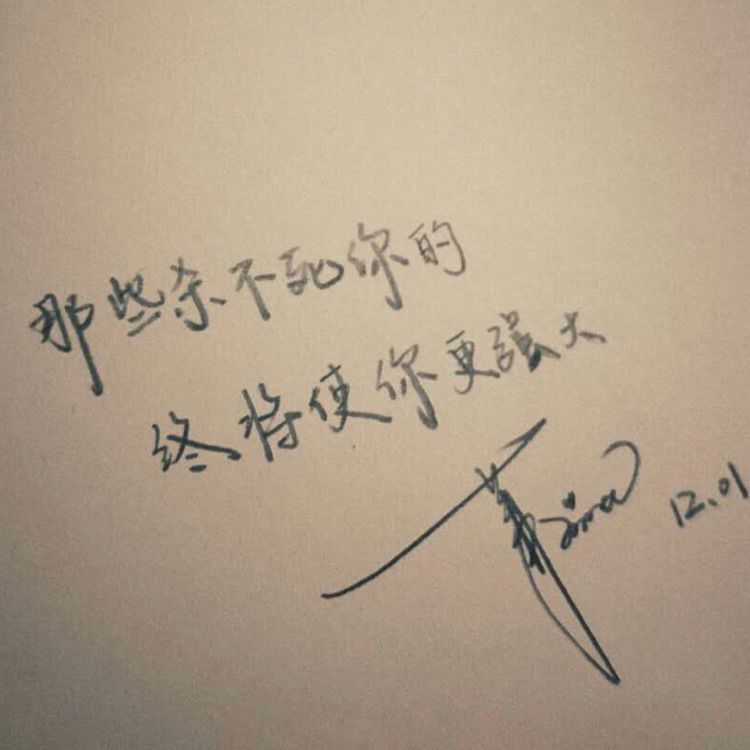 那些杀不死你的
终将使你更强大
12.01